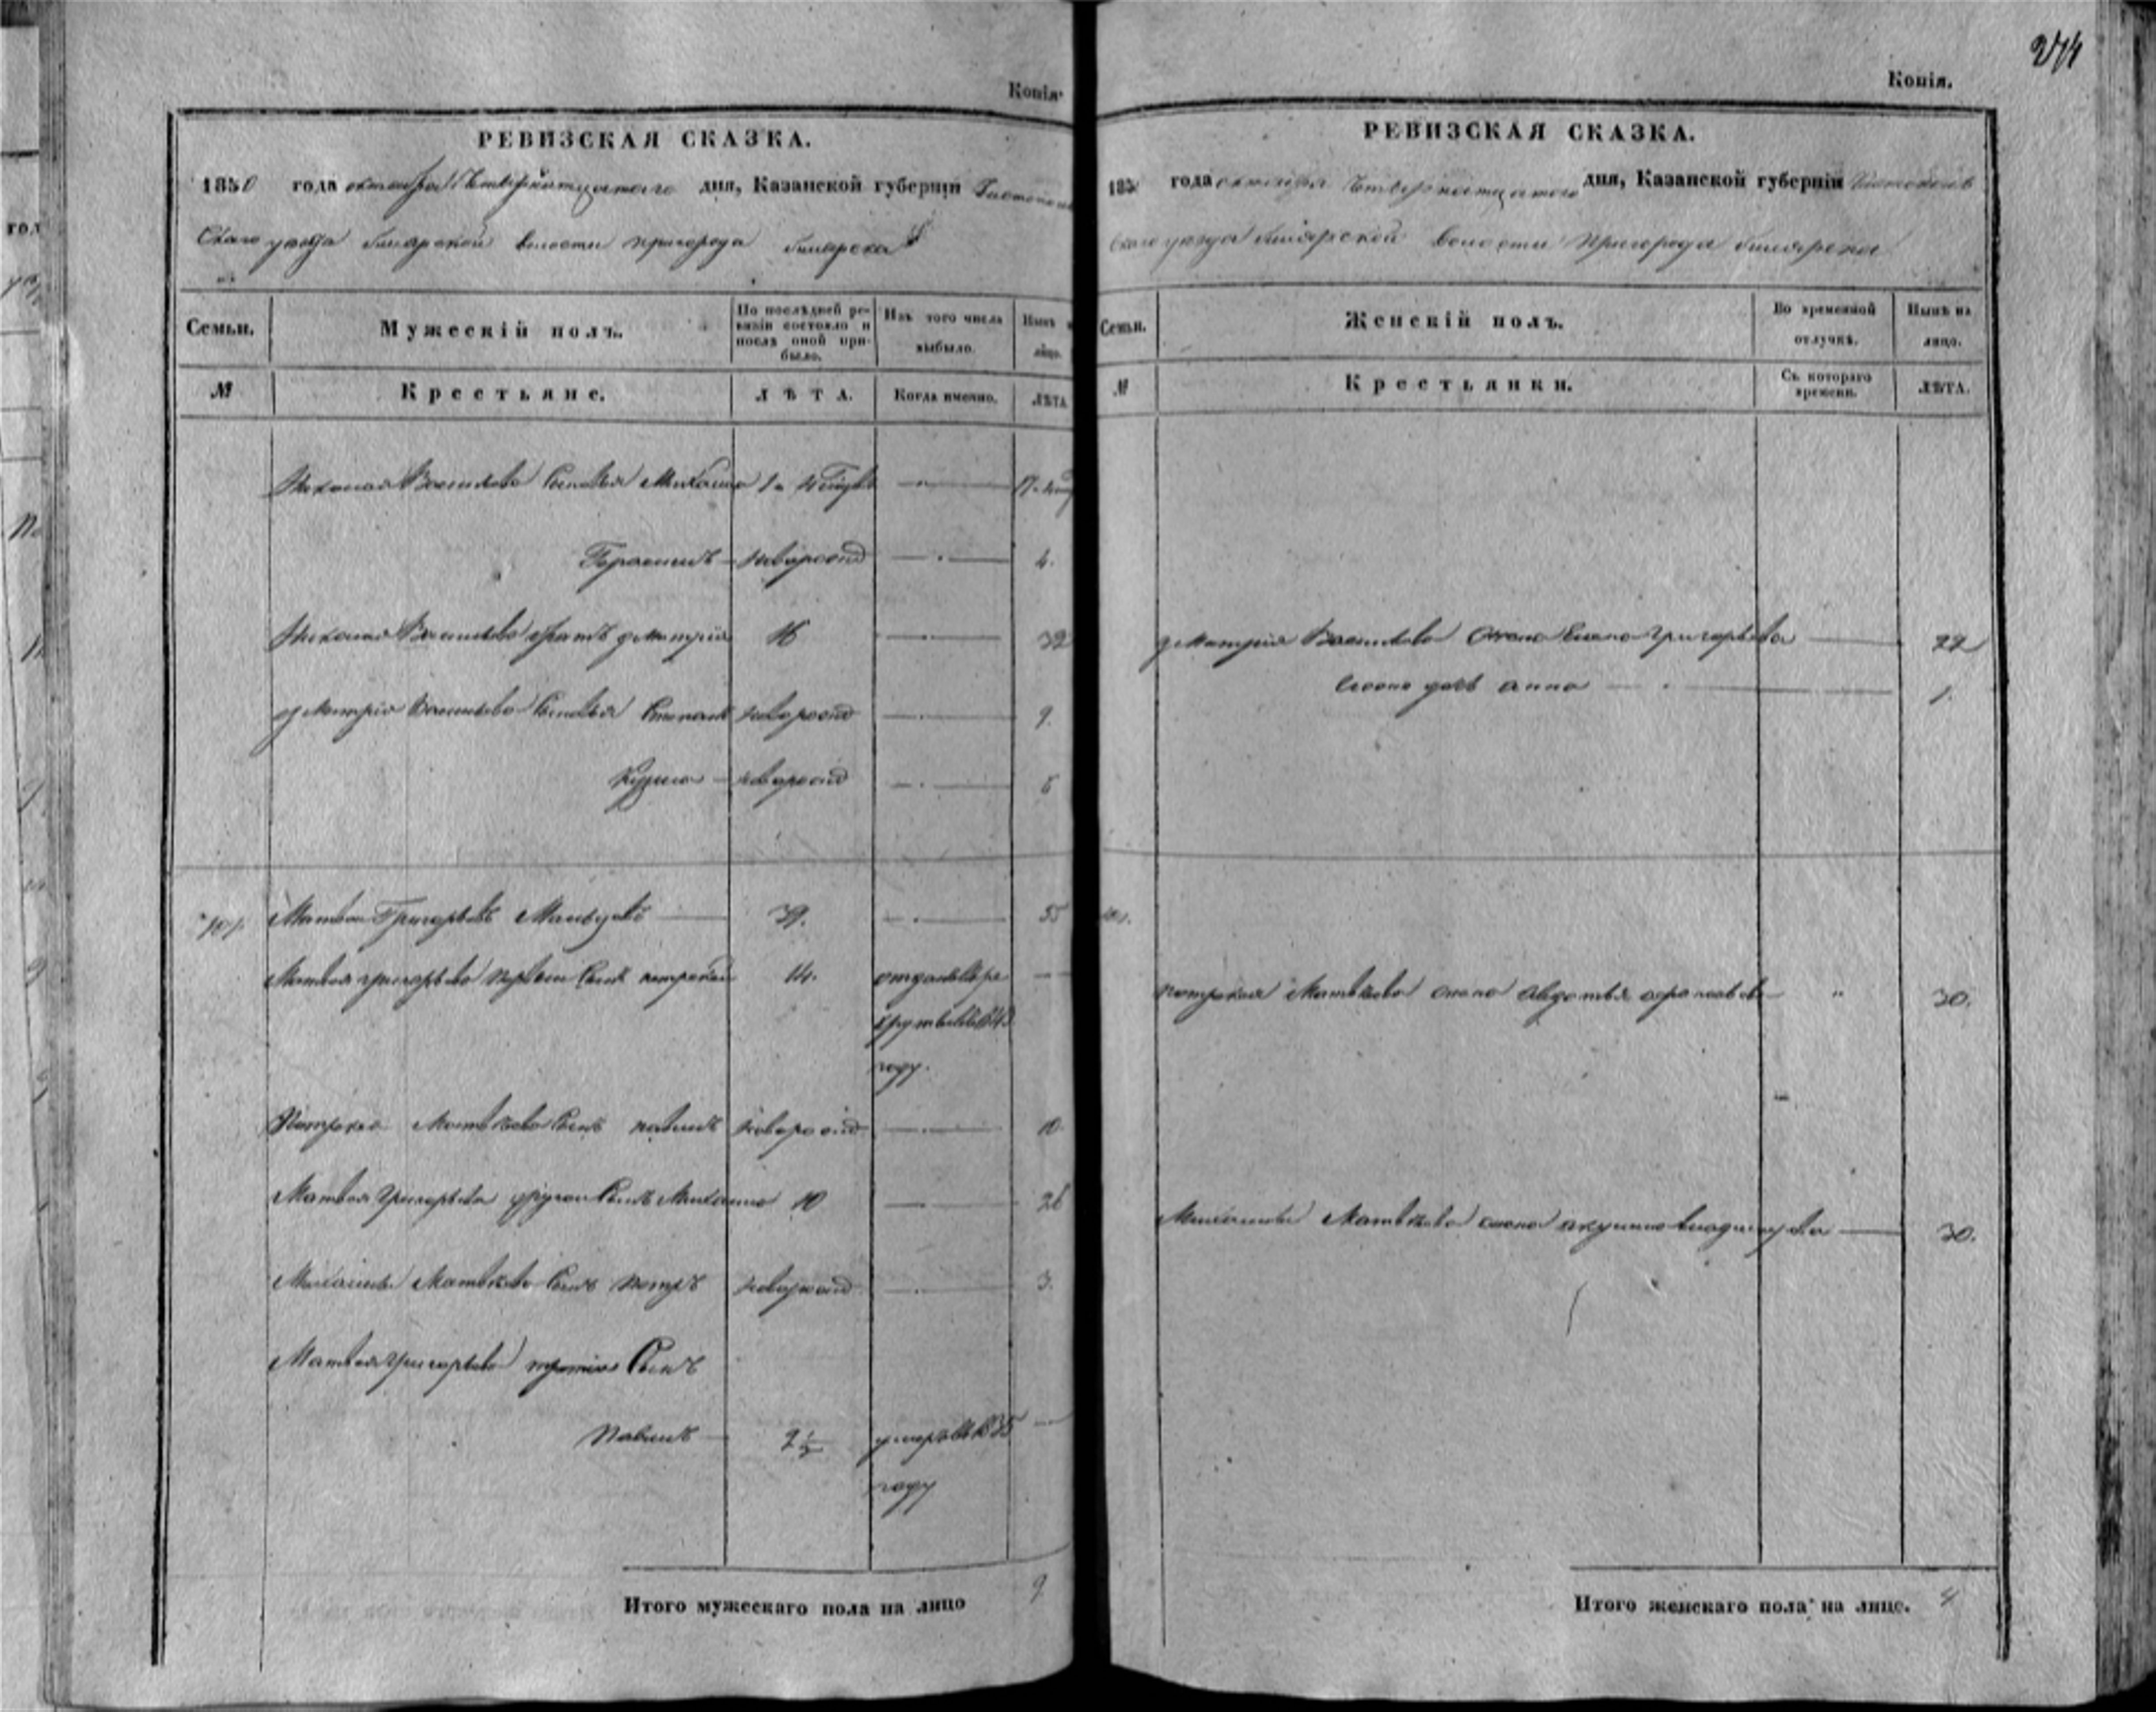 274
Копія.
РЕВИЗСКАЯ СКАЗКА.
1850 года октября Четвертнатцатого дня, Казанской губерніи Чистополь
Скаго уезда билярской волости пригорода билярска
Семьи.
Мужескій полъ.
По послѣдней ре-
визіи состояло и
послѣ оной при-
было.
Изъ того числа
выбыло.
Нынѣ на
лицо.
№
Крестьяне.
ЛѢТА.
Когда имянно.
ЛѢТА
Николая Васильева Сыновья Михаило
Герасимъ новорожд — 4.
Николая Васильева братъ дмитрій 16 — 32
дмитрія Васильева Сыновья Степанъ новорожд — 9.
Кузма — новорожд — 6
101 Матвей Григорьевъ 39. — 55
Матвея григорьева первой Сынъ 14. отданъ в ре
круты в 1843
году.
Матвеева Сынъ павилъ новорожд — 10
Матвея григорьева другой Сынъ Михаило 10 — 26
Михаилы Матвеева Сынъ петръ новорожд — 3.
Матвея григорьева третій Сынъ
Павилъ — 2½ умеръ в 1835
году
Итого мужескаго пола на лицо 9
Копія.
РЕВИЗСКАЯ СКАЗКА.
185 года октября Четвертнатцатого дня, Казанской губерніи Чистополь
скаго уезда билярской волости пригорода билярска
Семьи.
Женскій полъ.
Во временной
отлучкѣ.
Нынѣ на
лицо.
№
Крестьянки.
Съ котораго
времени.
ЛѢТА.
дмитрія Васильева жена Григорьева — 22
дочь анна — 1.
101.
Матвеева жена авдотья — " 30.
Михаилы Матвеева жена акулина — 30.
Итого женскаго пола на лицо. 4